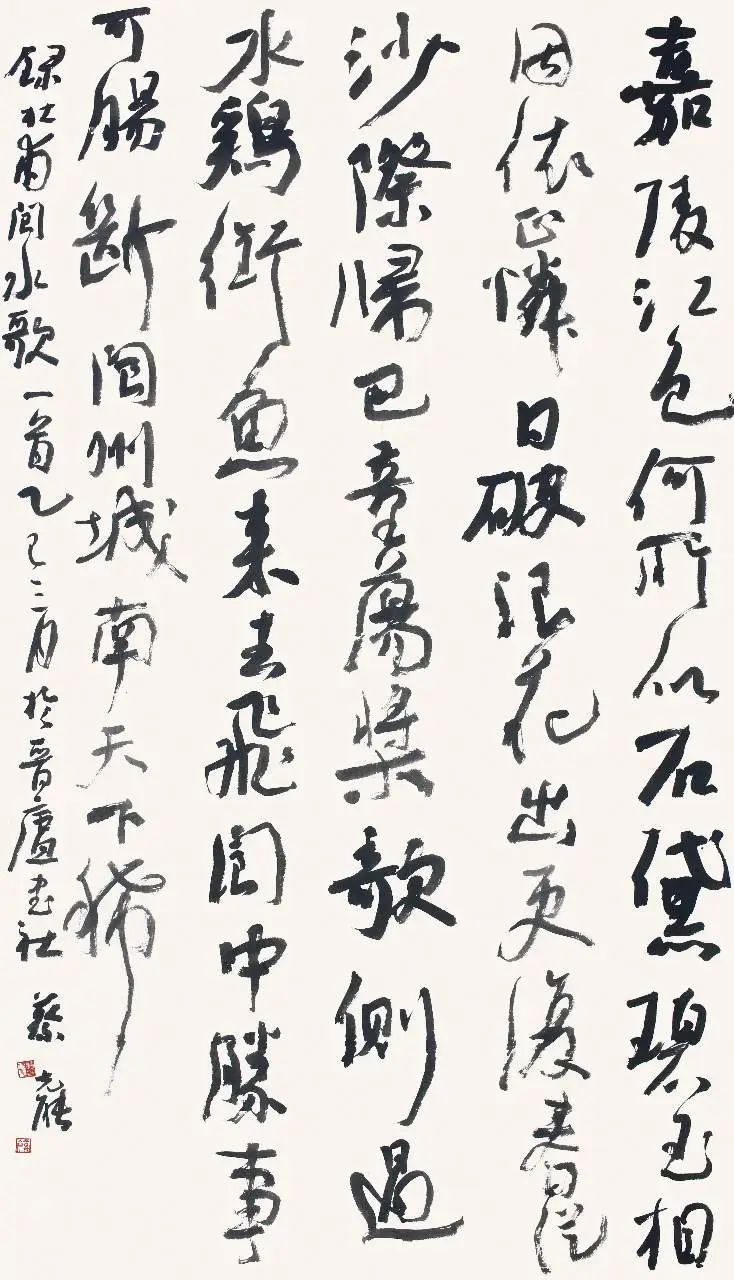 嘉陵江色何所似石黛碧玉相
因依正憐日破浪花出更復春從
沙際歸巴童蕩槳歌側過
水鷄銜魚來去飛閬中勝事
可腸斷閬州城南天下稀
録杜甫閬水歌一首乙巳三月於晉廬書社 蔡